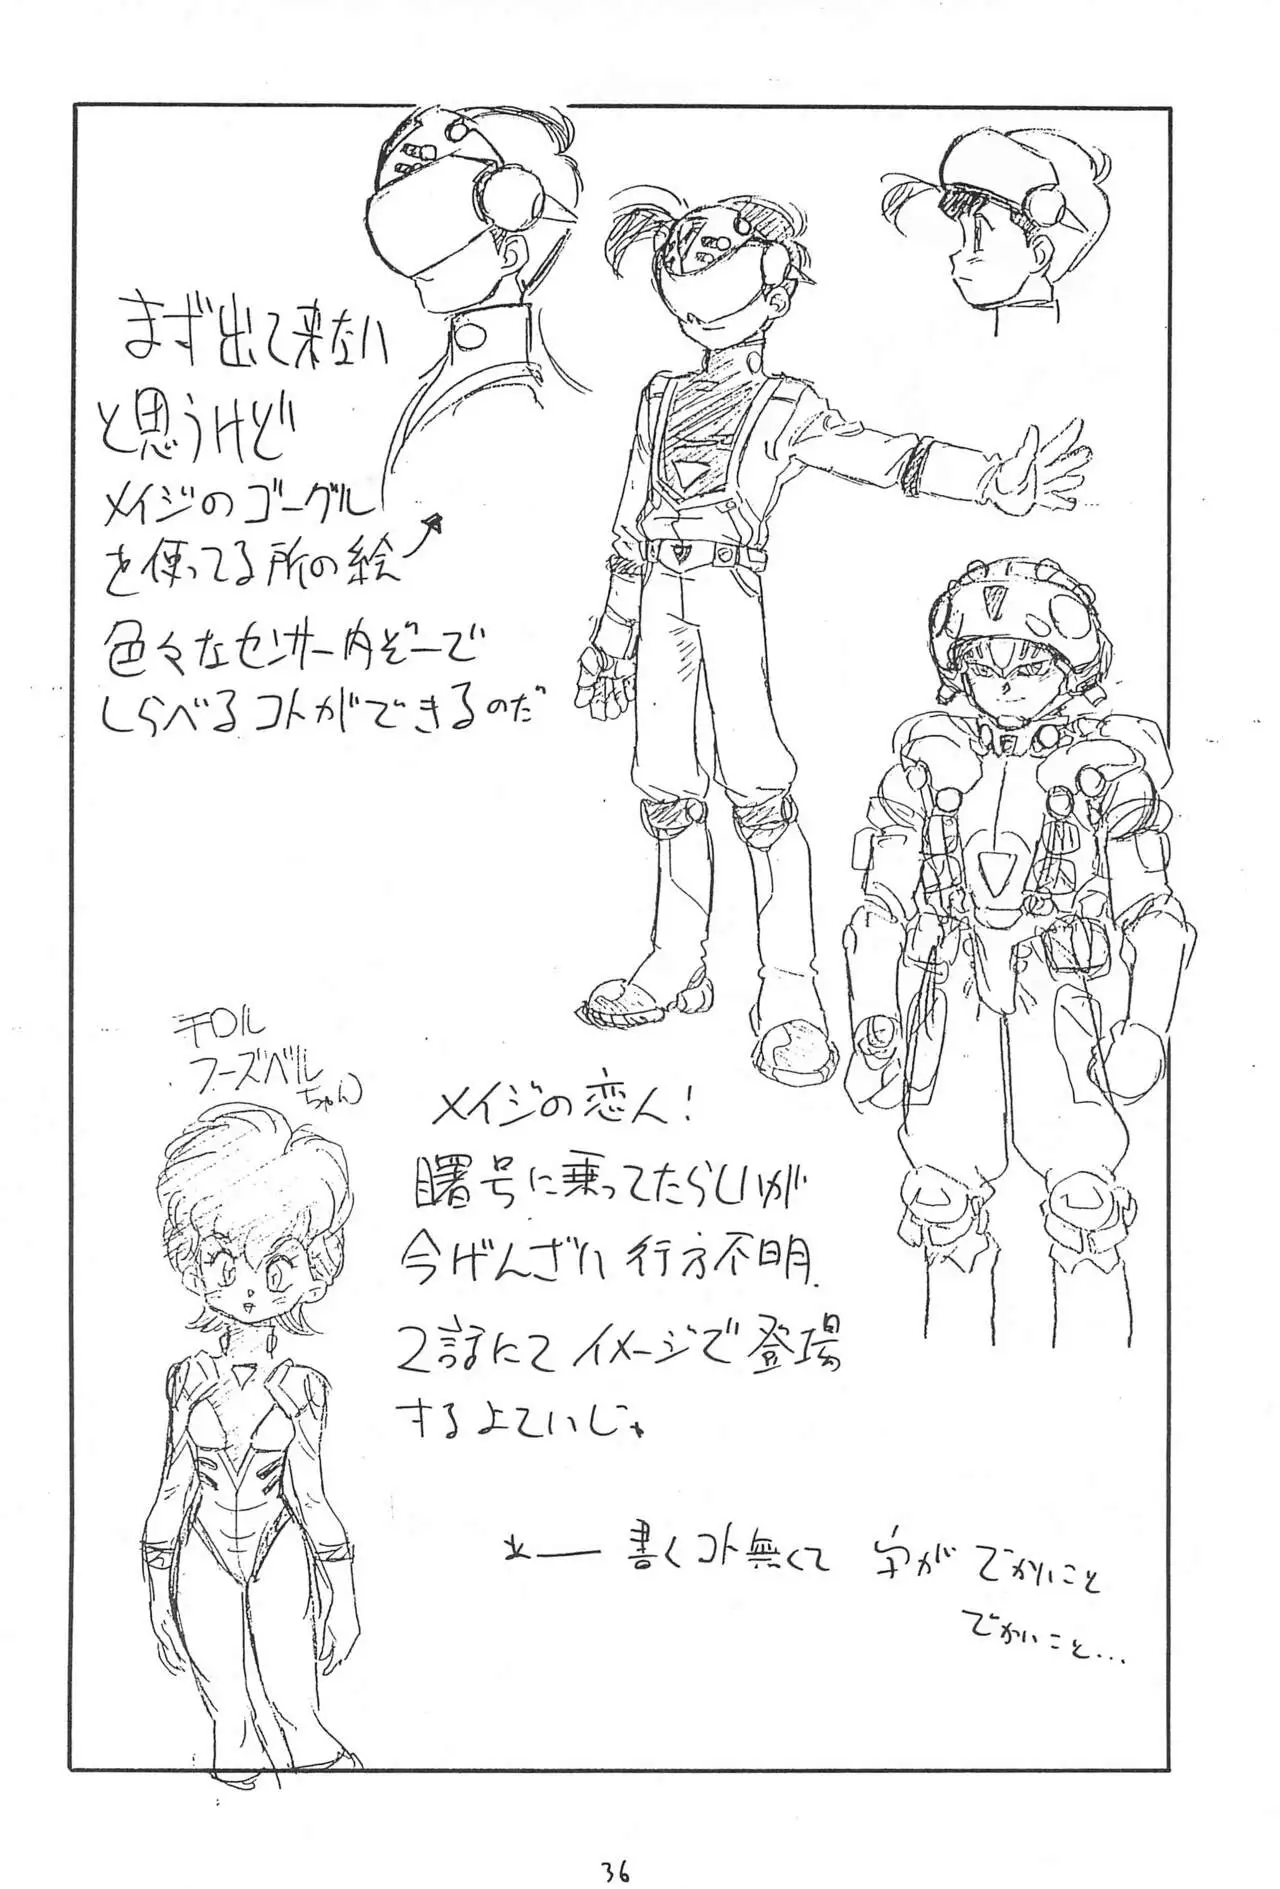 まず出て来ない
と思うけど
メイジのゴーグル
を使ってる所の絵
色々なセンサー内ぞーで
しらべるコトができるのだ
チロル
フーズベル
ちゃん
メイジの恋人!
曙号に乗ってたらしいが
今げんざい行方不明.
2話にてイメージで登場
するよていじゃ。
書くコト無くて 字がでかいこと
でかいこと…
36